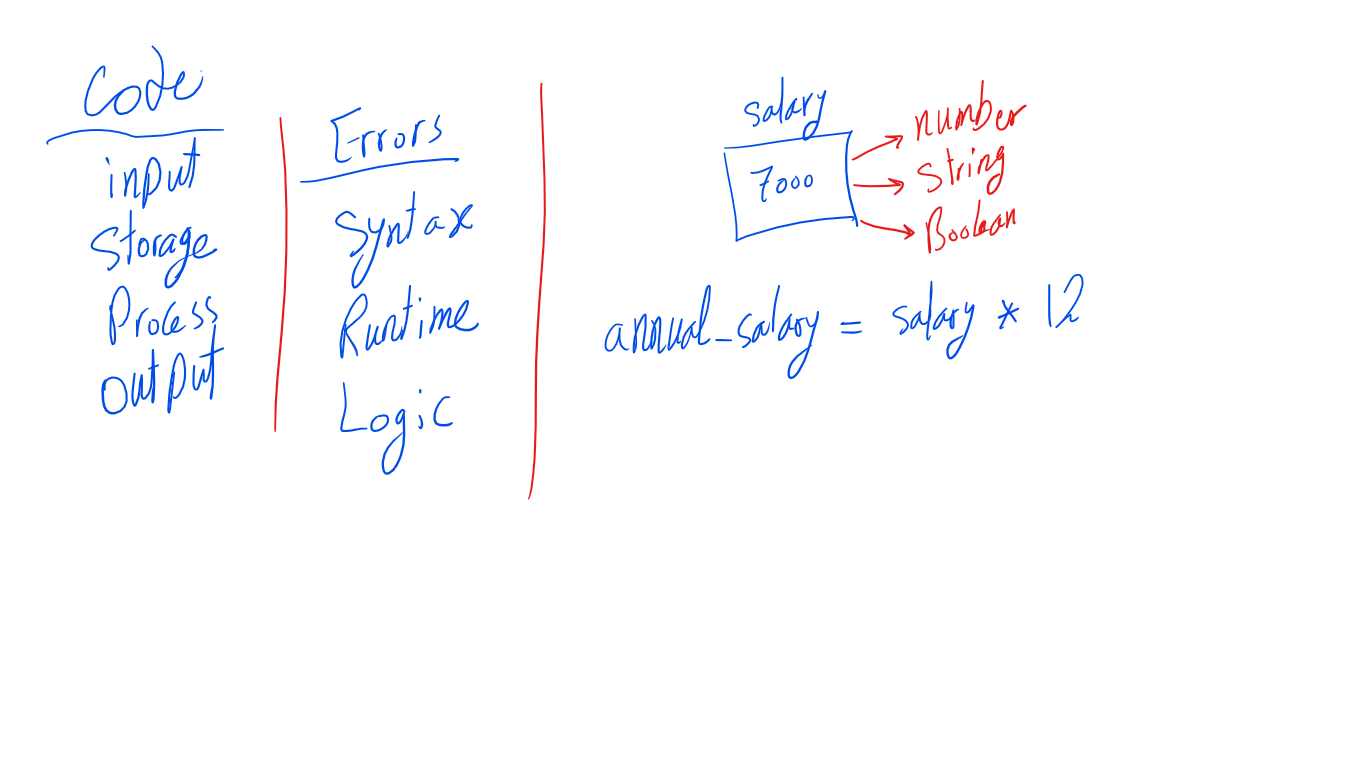 Code
input
Storage
Process
output
Errors
Syntax
Runtime
Logic
salary
7000
number
String
Boolean
annual_salary = salary * 12